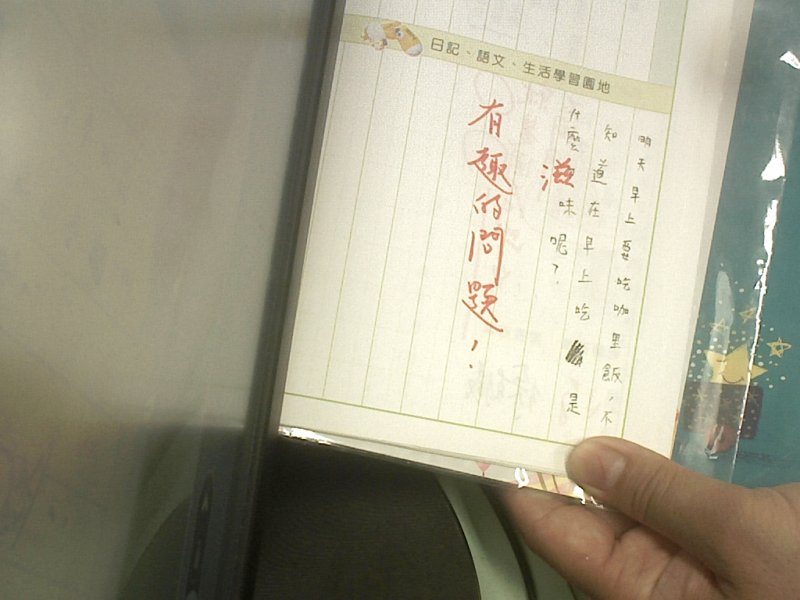 日記、語文、生活學習園地
明天早上要吃咖里飯,不
知道在早上吃是
什麼滋味呢?
有趣的問題!